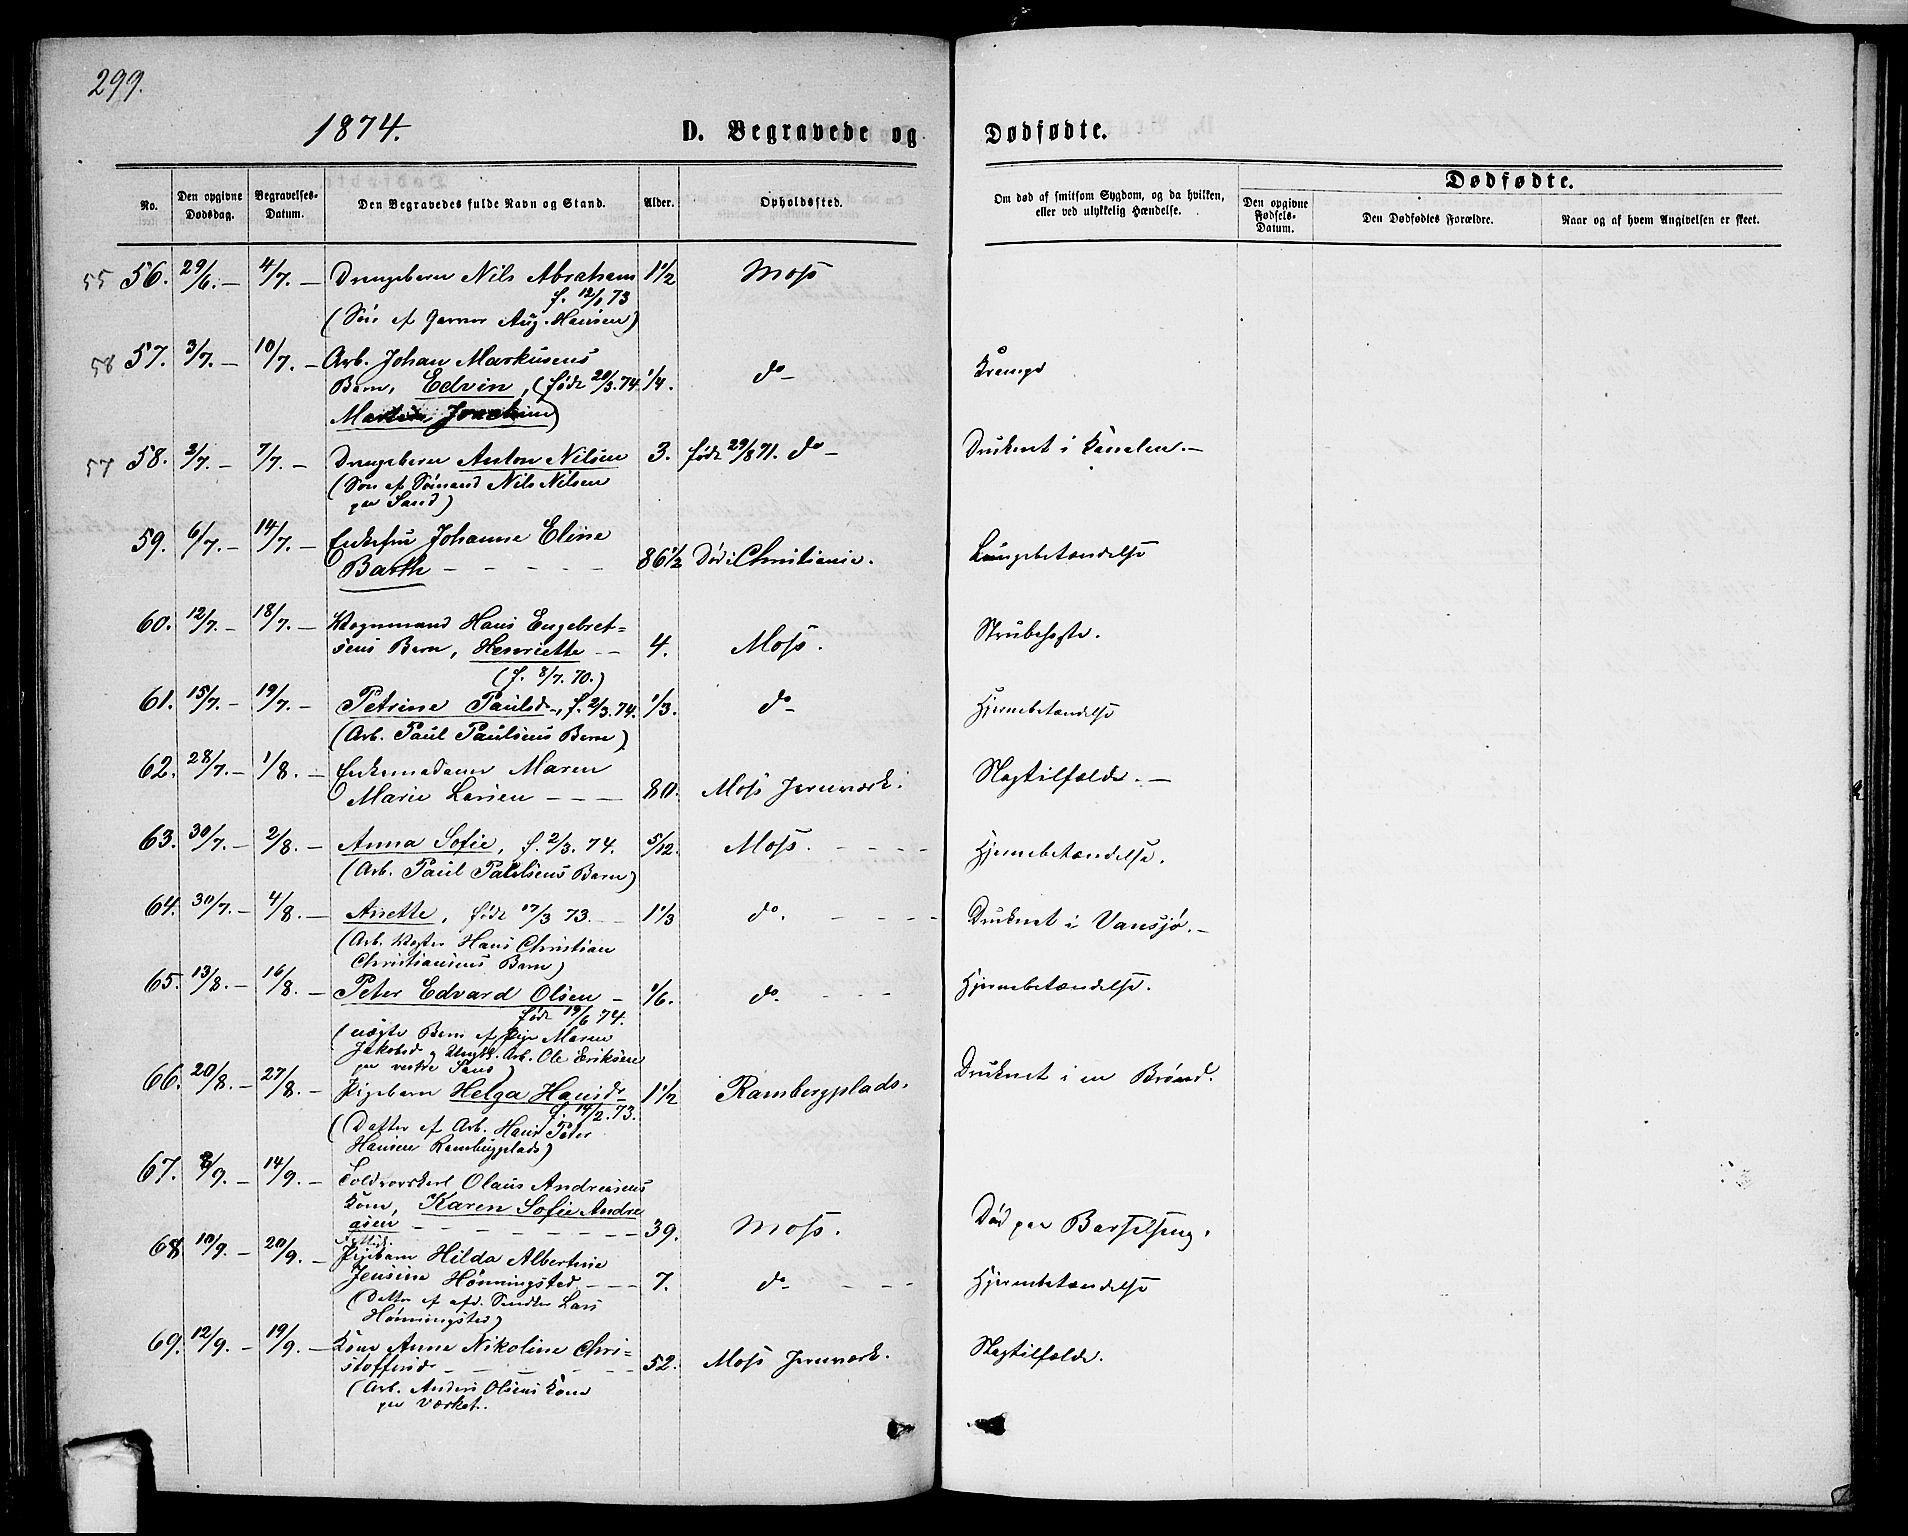 299.
1874.
D. Begravede og
Dødfødte.
No.
Den opgivne Dødsdag.
Begravelses-Datum.
Den Begravedes fulde Navn og Stand.
Alder.
Opholdssted.
Om død af smitsom Sygdom, og da hvilken, eller ved ulykkelig Hændelse.
Dødfødte.
Den opgivne Fødsels-Datum.
Den Dødfødtes Forældre.
Naar og af hvem Angivelsen er skeet.
55 56. 29/6. — 4/7. — Drengebarn Nils Abraham 1 1/2 Moss
f. 12/1 73
(Søn af Garver Aug. Hansen)
58 57. 3/7. — 10/7. — Arb. Johan Markusens
Barn, Edvin, (født 20/3. 74. 1/4. do — Krampe
Martin Joachim)
57 58. 2/7. — 7/7. — Drengebarn Anton Nilsen 3. født 29/8 71. do — Druknet i Kanalen. —
(Søn af Sømand Nils Nilsen
paa Sand)
59. 6/7. — 14/7. — Enkefru Johanne Eline
Barth — — — — — 86 1/2 Død i Christiania. Lungebetændelse
60. 12/7. — 18/7. — Vognmand Hans Engebret=
sens Barn, Henriette — — 4. Moss. Strubehoste.
(f. 8/7. 70.)
61. 15/7. — 19/7. — Petrine Paulsd., f. 2/3. 74. 1/3. do — Hjernebetændelse
(Arb. Paul Paulsens Barn)
62. 28/7. — 1/8. — Enkemadame Maren
Marie Larsen — — — 80. Moss Jernværk. Slagtilfælde. —
63. 30/7. — 2/8. — Anna Sofie, f. 2/3. 74. 5/12. Moss. — — — — Hjernebetændelse.
(Arb. Paul Paulsens Barn)
64. 30/7. — 4/8. — Anette, født 17/3 73. — — 1 1/3 do. — — — — Druknet i Vansjø. —
(Arb. Hans Christian
Christiansens Barn)
65. 13/8. — 16/8. — Peter Edvard Olsen — 1/6. do. — — — Hjernebetændelse.
født 19/6 74.
(uægte Barn af Pige Maren
Jakobsd. og Ungk. Arb. Ole Eriksen
paa vestre)
66. 20/8. — 27/8. — Pigebarn Helga Hansd. 1 1/2 Rambergplads. Druknet i en Brønd.
f. 19/2. 73.
(Datter af Arb. Hans Peter
Hansen Rambergplads)
67. 8/9. — 14/9. — Toldroerskarl Olaus Andreasens
Kone, Karen Sofie Andre
asen — — — — — — 39. Moss. Død paa Barselseng.
68. 10/9. — 20/9. — Pigebarn Hilda Albertine
Jensine Hønningstad. — — — 7. do — — — Hjernebetændelse
(Datter af afd. Snedker Lars
Hønningstad)
69. 12/9. — 19/9. — Kone Anne Nikoline Chri=
stoffersd. — — — — — 52. Moss Jernværk. Slagtilfælde.
(Arb. Anders Olsens Kone
paa Værket.